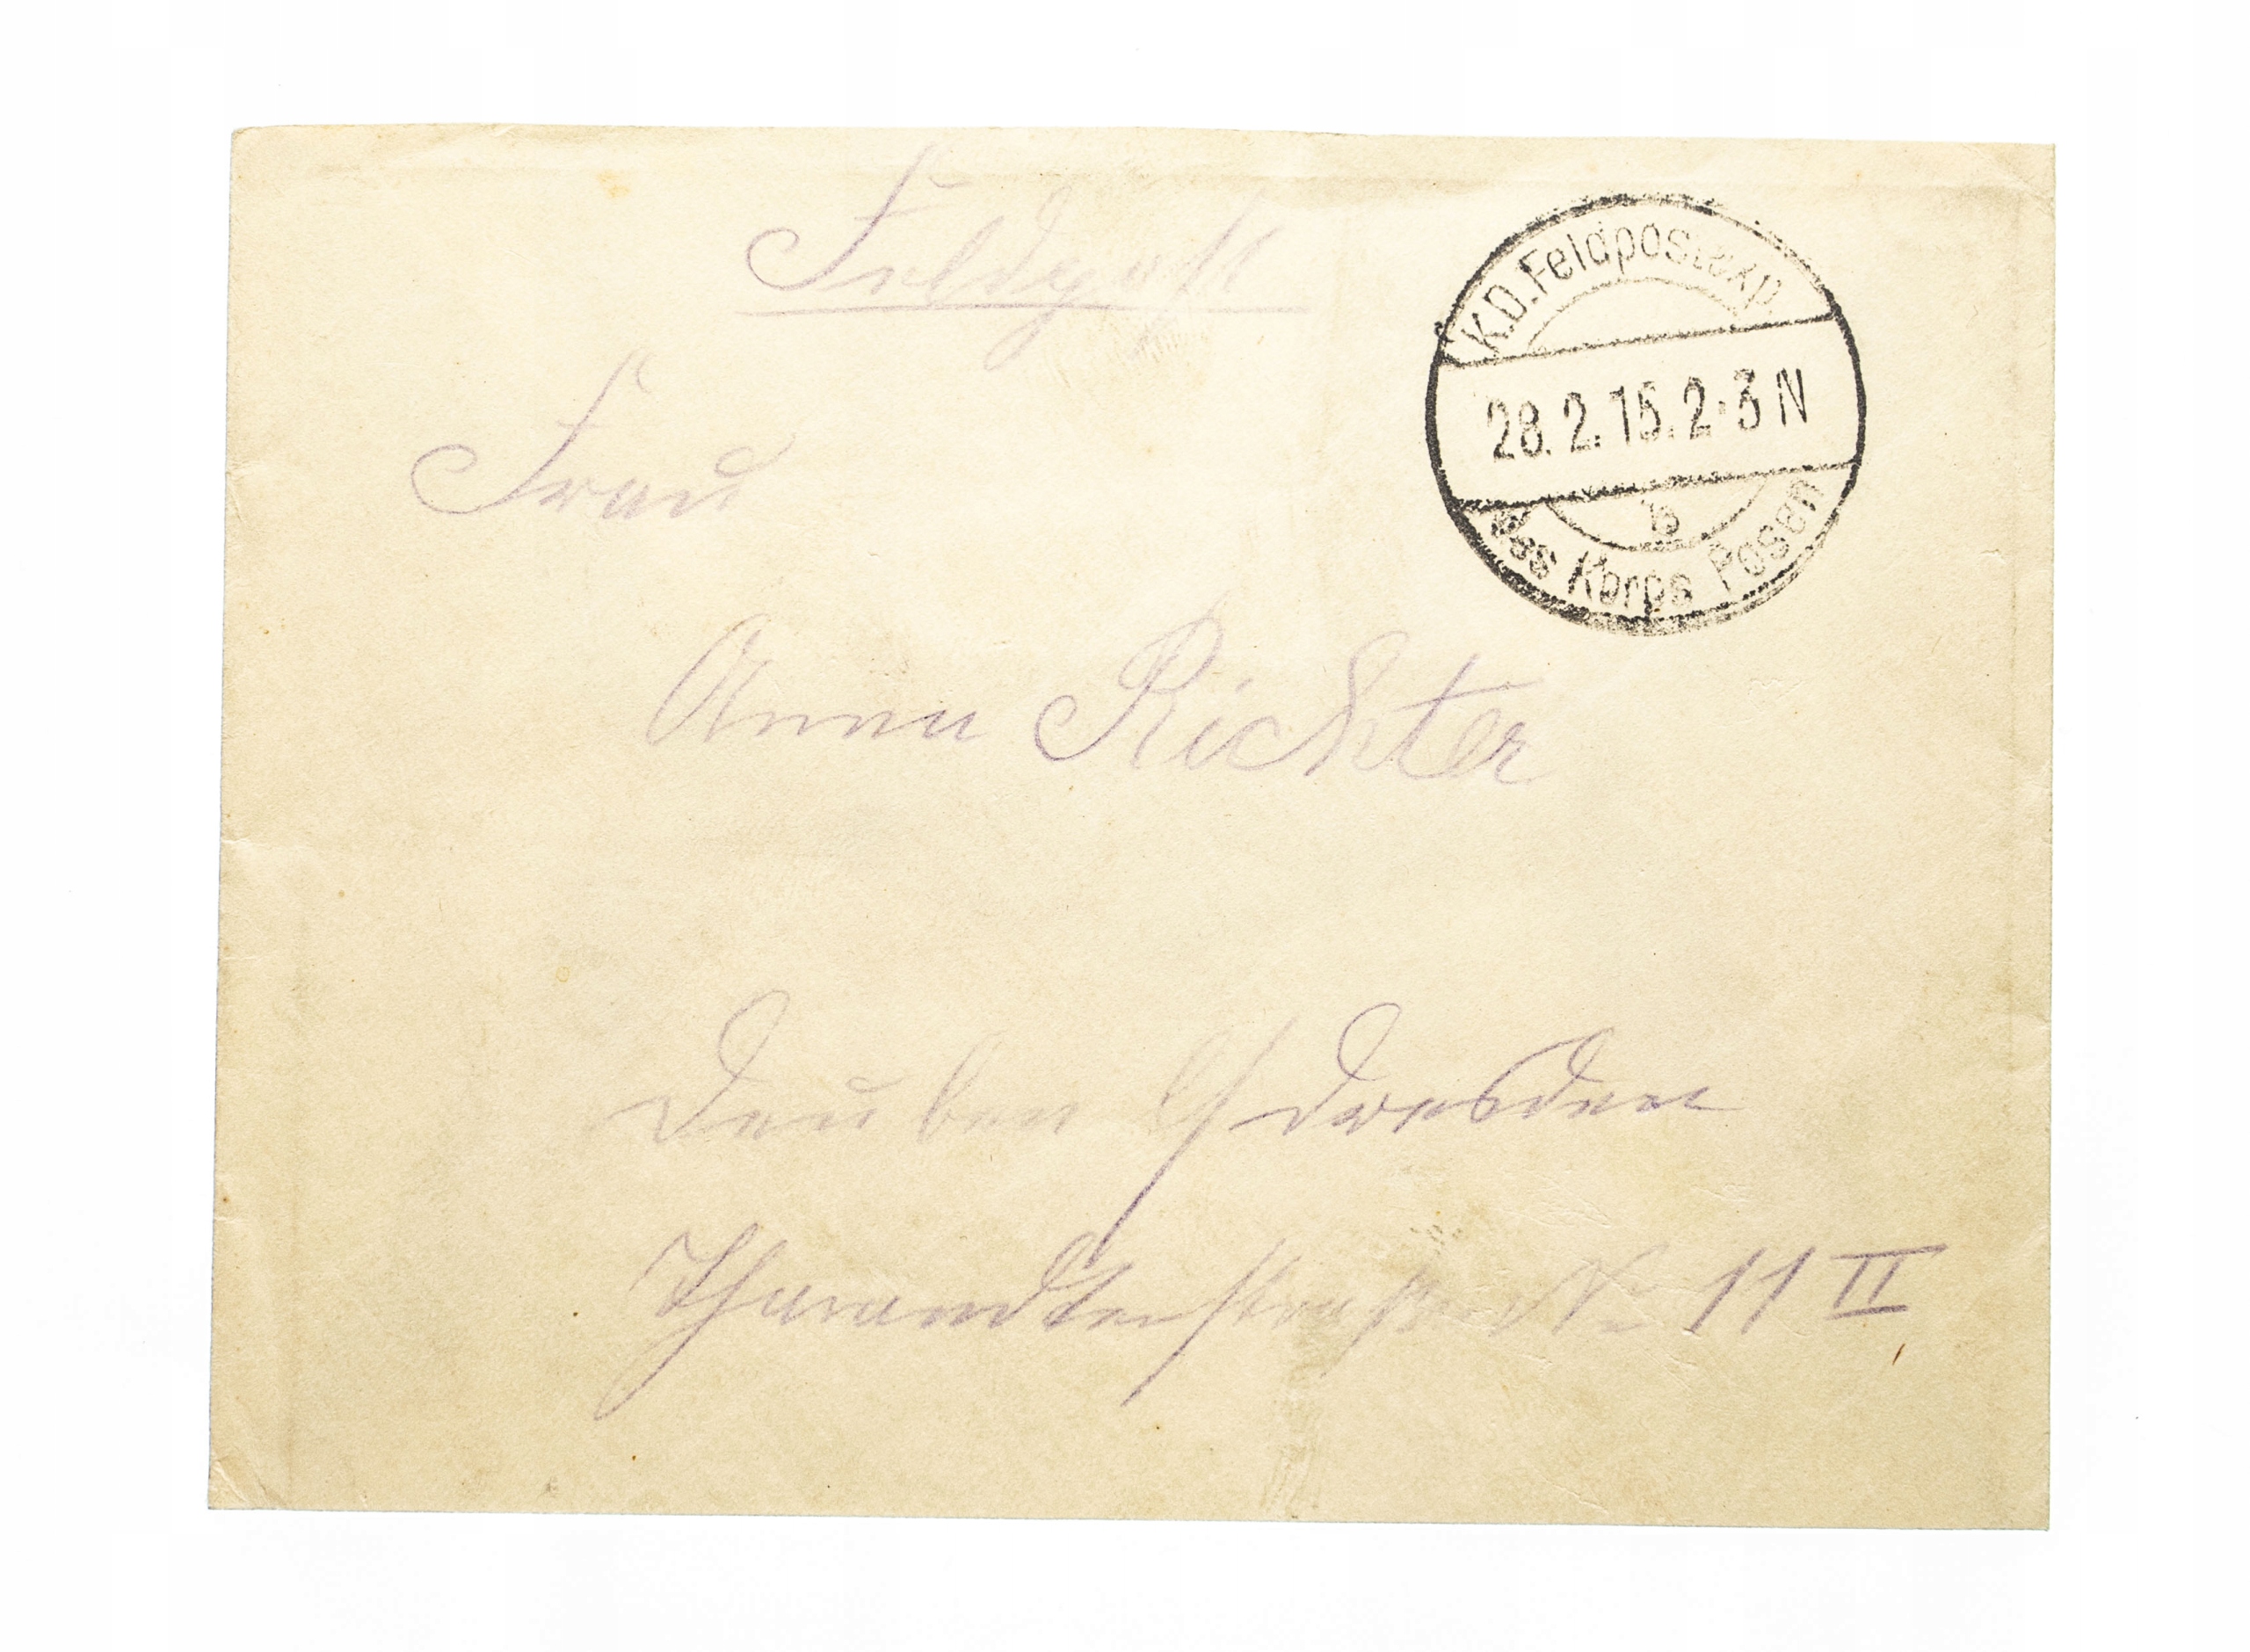 Feldpost
K.D.Feldpostexp.
28.2.15.2-3N
b
des Korps Posen
Frau
Anna Richter
Deuben b/ Dresden
Tharandterstraße No 11 II